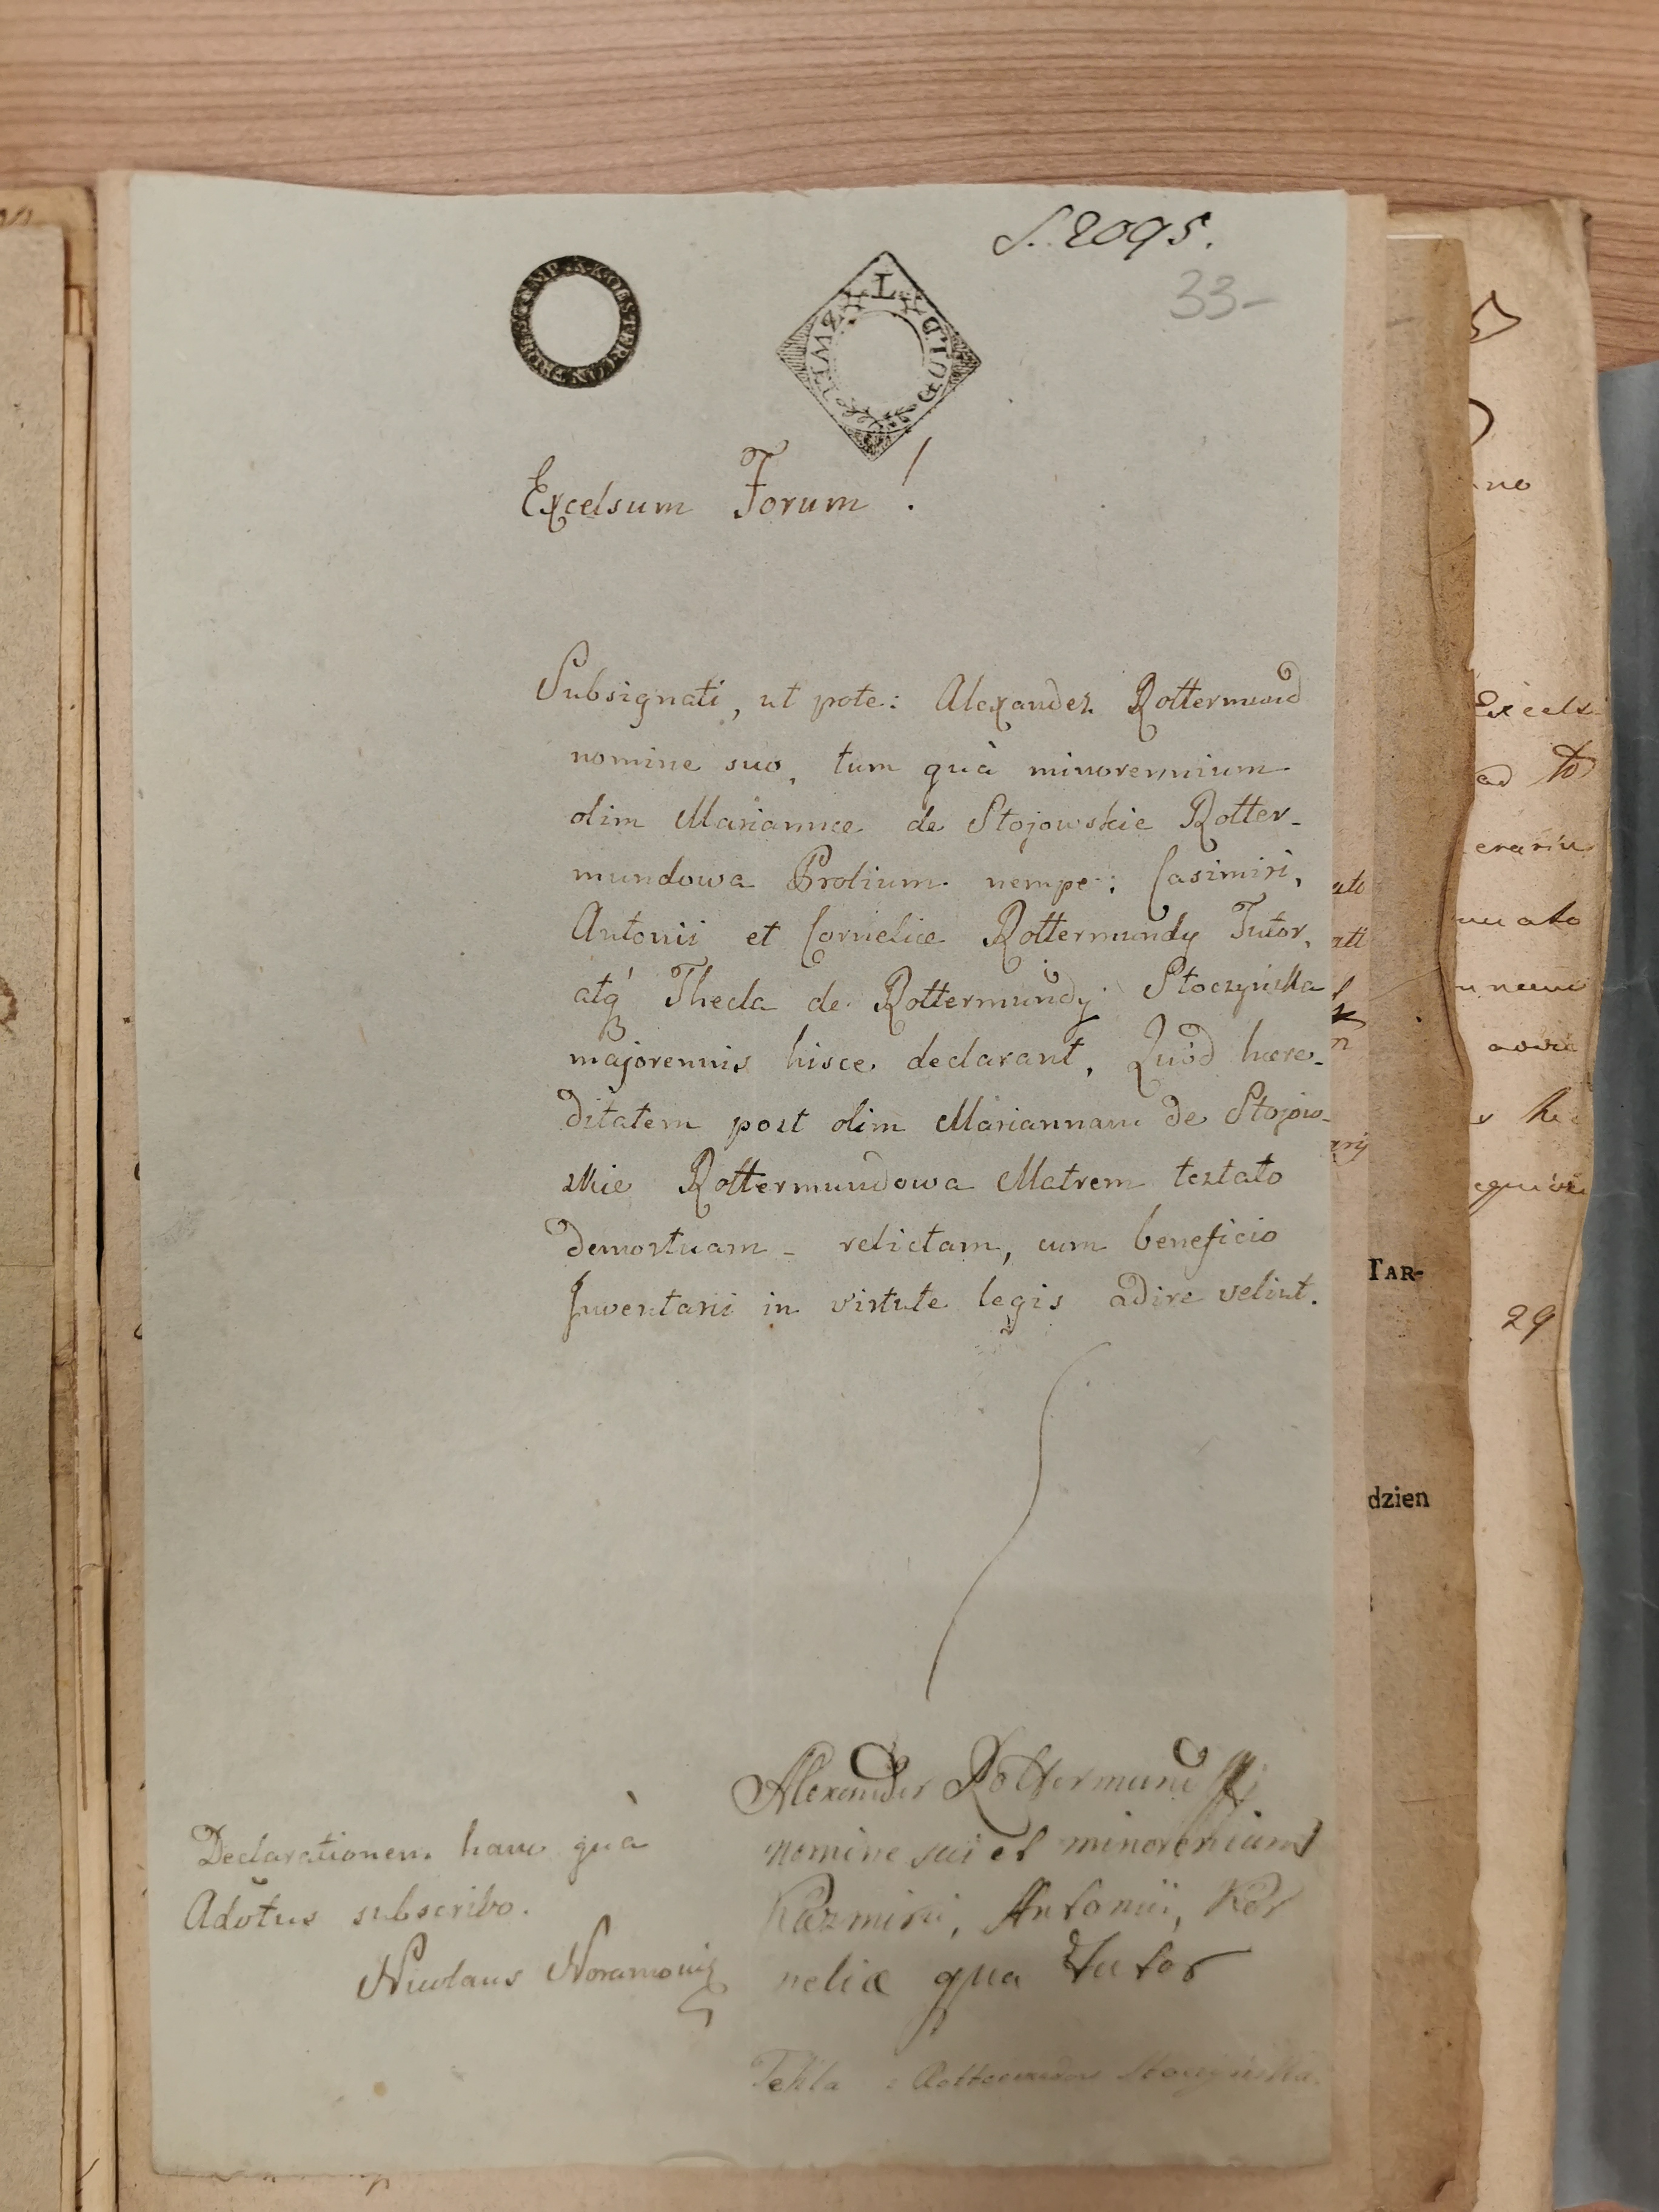 S. 2095.
33-
Excelsum Forum!
Subsignati, ut pote: Alexander Rottermund
nomine suo, tum quà minorennium
olim Mariannæ de Stojowskie Rotter-
mundowa Prolium nempe: Casimiri,
Antonii et Corneliæ Rottermundy Tutor,
atq Thecla de Rottermundy Stoczyńska
majorennis hisce declarant, Quòd hære-
ditatem post olim Mariannam de Stojow-
skie Rottermundowa Matrem testato
demortuam - relictam, cum beneficio
Inventarii in virtute legis adire velint.
Alexander Rottermund
nomine sui et minorenium
Kazmiri, Antonii, Kor
neliæ qua Tutor
Tekla Stoczyńska
Declarationem hanc quà
Adŭtus subscribo.
Nicolaus
TAR-
dzien
29